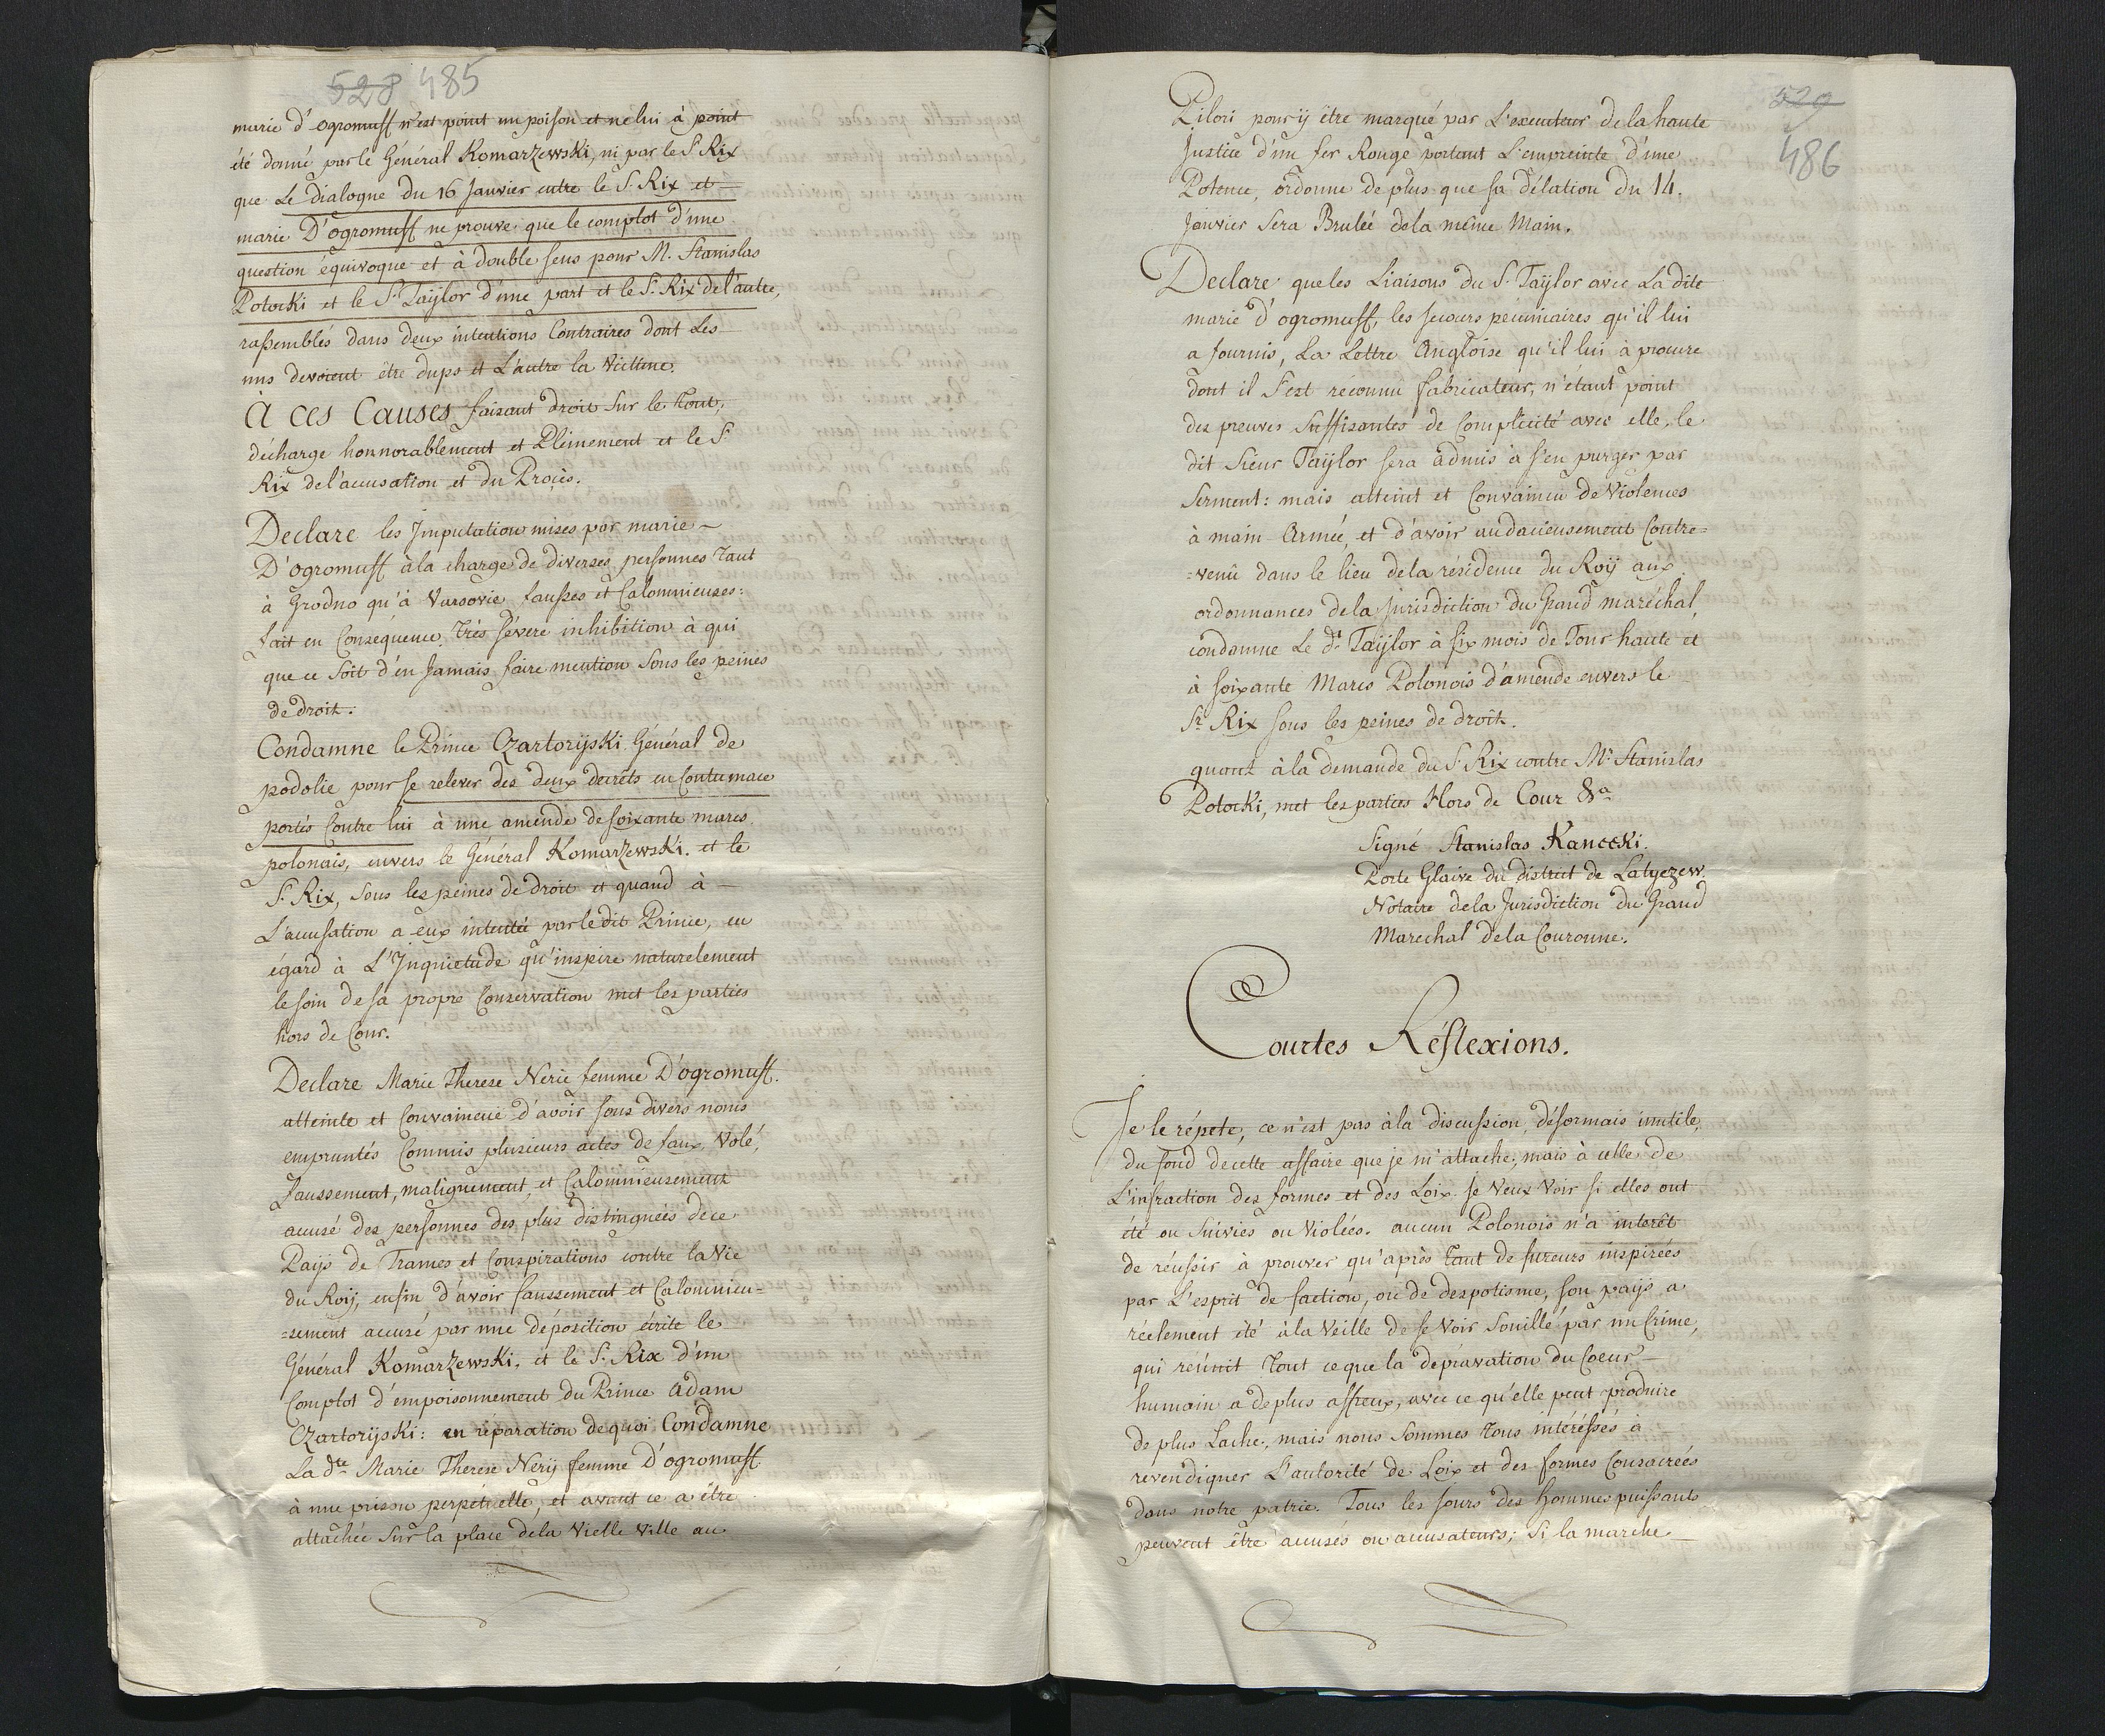 528 485
marie d'ogromuff n'est point un poison et ne lui à point
été donné par le Général Komarzewski, ni par le S. Rix
que Le dialogue du 16 Janvier entre le S. Rix et
marie D'ogromuff ne prouve que le complot d'une
question équivoque et à double sens pour M. Stanislas
Potocki et le Sr. Taÿlor d'une part et le S. Rix de l'autre,
rassemblés dans deux intentions Contraires dont Les
uns devoient être dups et L'autre la Victime.
À ces Causes faisant droit sur le tout,
décharge honnorablement et Pleinement et le S.
Rix de l'accusation et du Procès.
Declare les Imputation mises par marie
D'ogromuff à la charge de diverses personnes tant
à Grodno qu'à Varsovie fausses et Calomnieuses:
fait en Conséquence très sévere inhibition à qui
que ce soit d'en Jamais faire mention sous les peines
de droit.
Condamne le Prince Czartorÿski Général de
podolie pour se relever des deux decrêts en Contumace
portés Contre lui à une amende de soixante marcs
polonais, envers le Général Komarzewski. et le
S. Rix, sous les peines de droit et quand à
L'accusation a eux intenteé par le dit Prince, eu
égard à L'Inquietude qu'inspire naturelement
le soin de sa propre Conservation met les parties
hors de Cour.
Declare Marie Therese Nerie femme D'ogromuff.
atteinte et Convaincue d'avoir sous divers noms
empruntés Commis plusieurs actes de faux, Volé,
faussement, malignement, et Calomnieusement
accusé des personnes des plus distinguées de ce
Païs de Trames et Conspirations contre la Vie
du Roÿ, enfin d'avoir faussement et Calomnieu=
=sement accusé par une déposition écrite le
Général Komarzewski. et le S. Rix d'un
Complot d'empoisonnement du Prince adam
Czartorÿski: en réparation de quoi Condamne
La dte Marie Therese Nerÿ femme D'ogromuff
à une prison perpétuelle, et avant ce a être
attachée sur la place de la Vielle Ville au
529
486
Pilori pour ÿ être marqué par L'executeur de la haute
Justice d'un fer Rouge portant L'empreinte d'une
Potence, ordonne de plus que sa délation du 14.
Janvier sera Bruleé de la même Main.
Declare que les Liaisons du S. Taÿlor avec La dite
marie d'ogromuff, les secours pécuniaires qu'il lui
a fournis, La Lettre Angloise qu'il lui à procure
dont il s'est réconnu fabricateur, n'étant point
des preuves suffisantes de Complicité avec elle, le
dit Sieur Taÿlor sera admis à s'en purger par
Serment: mais atteint et Convaincu de Violences
à main Armée, et d'avoir audacieusement Contre=
=venû dans le lieu de la résidence du Roÿ aux
ordonnances de la Jurisdiction du Grand maréchal,
condamne Le dr. Taÿlor à six mois de Tour haute et
à soixante Marcs Polonois d'amende envers le
Sr. Rix sous les peines de droit.
quant à la demande du S. Rix contre Mr. Stanislas
Potocki, met les parties Hors de Cour &a
Signé Stanislas Kanecki.
Porte Glaive du district de Latyczew.
Notaire de la Jurisdiction du Grand
Marechal de la Couronne.
Courtes Réflexions.
Je le répete, ce n'est pas à la discussion, désormais inutile,
du fond de cette affaire que je m'attache; mais à celle de
L'infraction des formes et des Loix. Je Veux Voir si elles ont
été ou suiviés ou Violées. aucun Polonois n'a interêt
de réussir à prouver qu'après tant de fureurs inspirées
par L'esprit de faction, ou de despotisme, son païs a
réelement été à la Veille de se Voir souillé par un Crime,
qui réunit tout ce que la depravation du Coeur
humain a de plus affreux, avec ce qu'elle peut produire
de plus Lache, mais nous sommes tous intéréssés à
revendiquer L'autorité de Loix et des formes Consacrées
dans notre patrie. Tous les Jours des Hommes puissants
peuvent être accusés ou accusateurs; si la marche